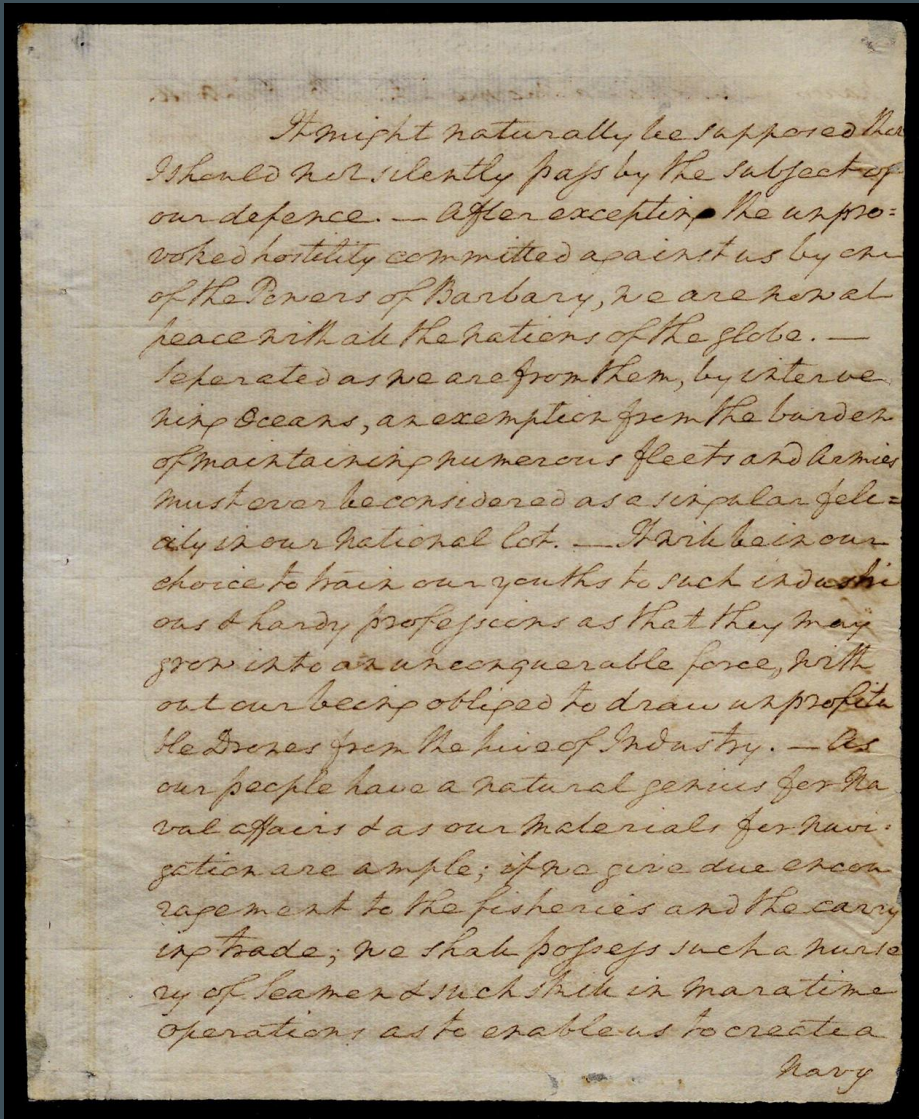 It might naturally be supposed that
I should not silently pass by the subject of
our defence. — After excepting the unpro=
voked hostility committed against us by one
of the Powers of Barbary, we are now at
peace with all the nations of the globe. —
Seperated as we are from them, by interve
ning Oceans, an exemption from the burden
of maintaining numerous fleets and Armies
must ever be considered as a singular feli=
city in our National lot. — It will be in our
choice to train our youths to such industri
ous & hardy professions as that they may
grow into an unconquerable force, with
out our being obliged to draw unprofita
ble Drones from the hive of Industry. — As
our people have a natural genius for Na
val affairs & as our Materials for Navi=
gation are ample; if we give due encou
ragement to the fisheries and the carry
ing trade; we shall possess such a nurse
ry of Seamen & such skill in maratime
operations as to enable us to create a
Navy